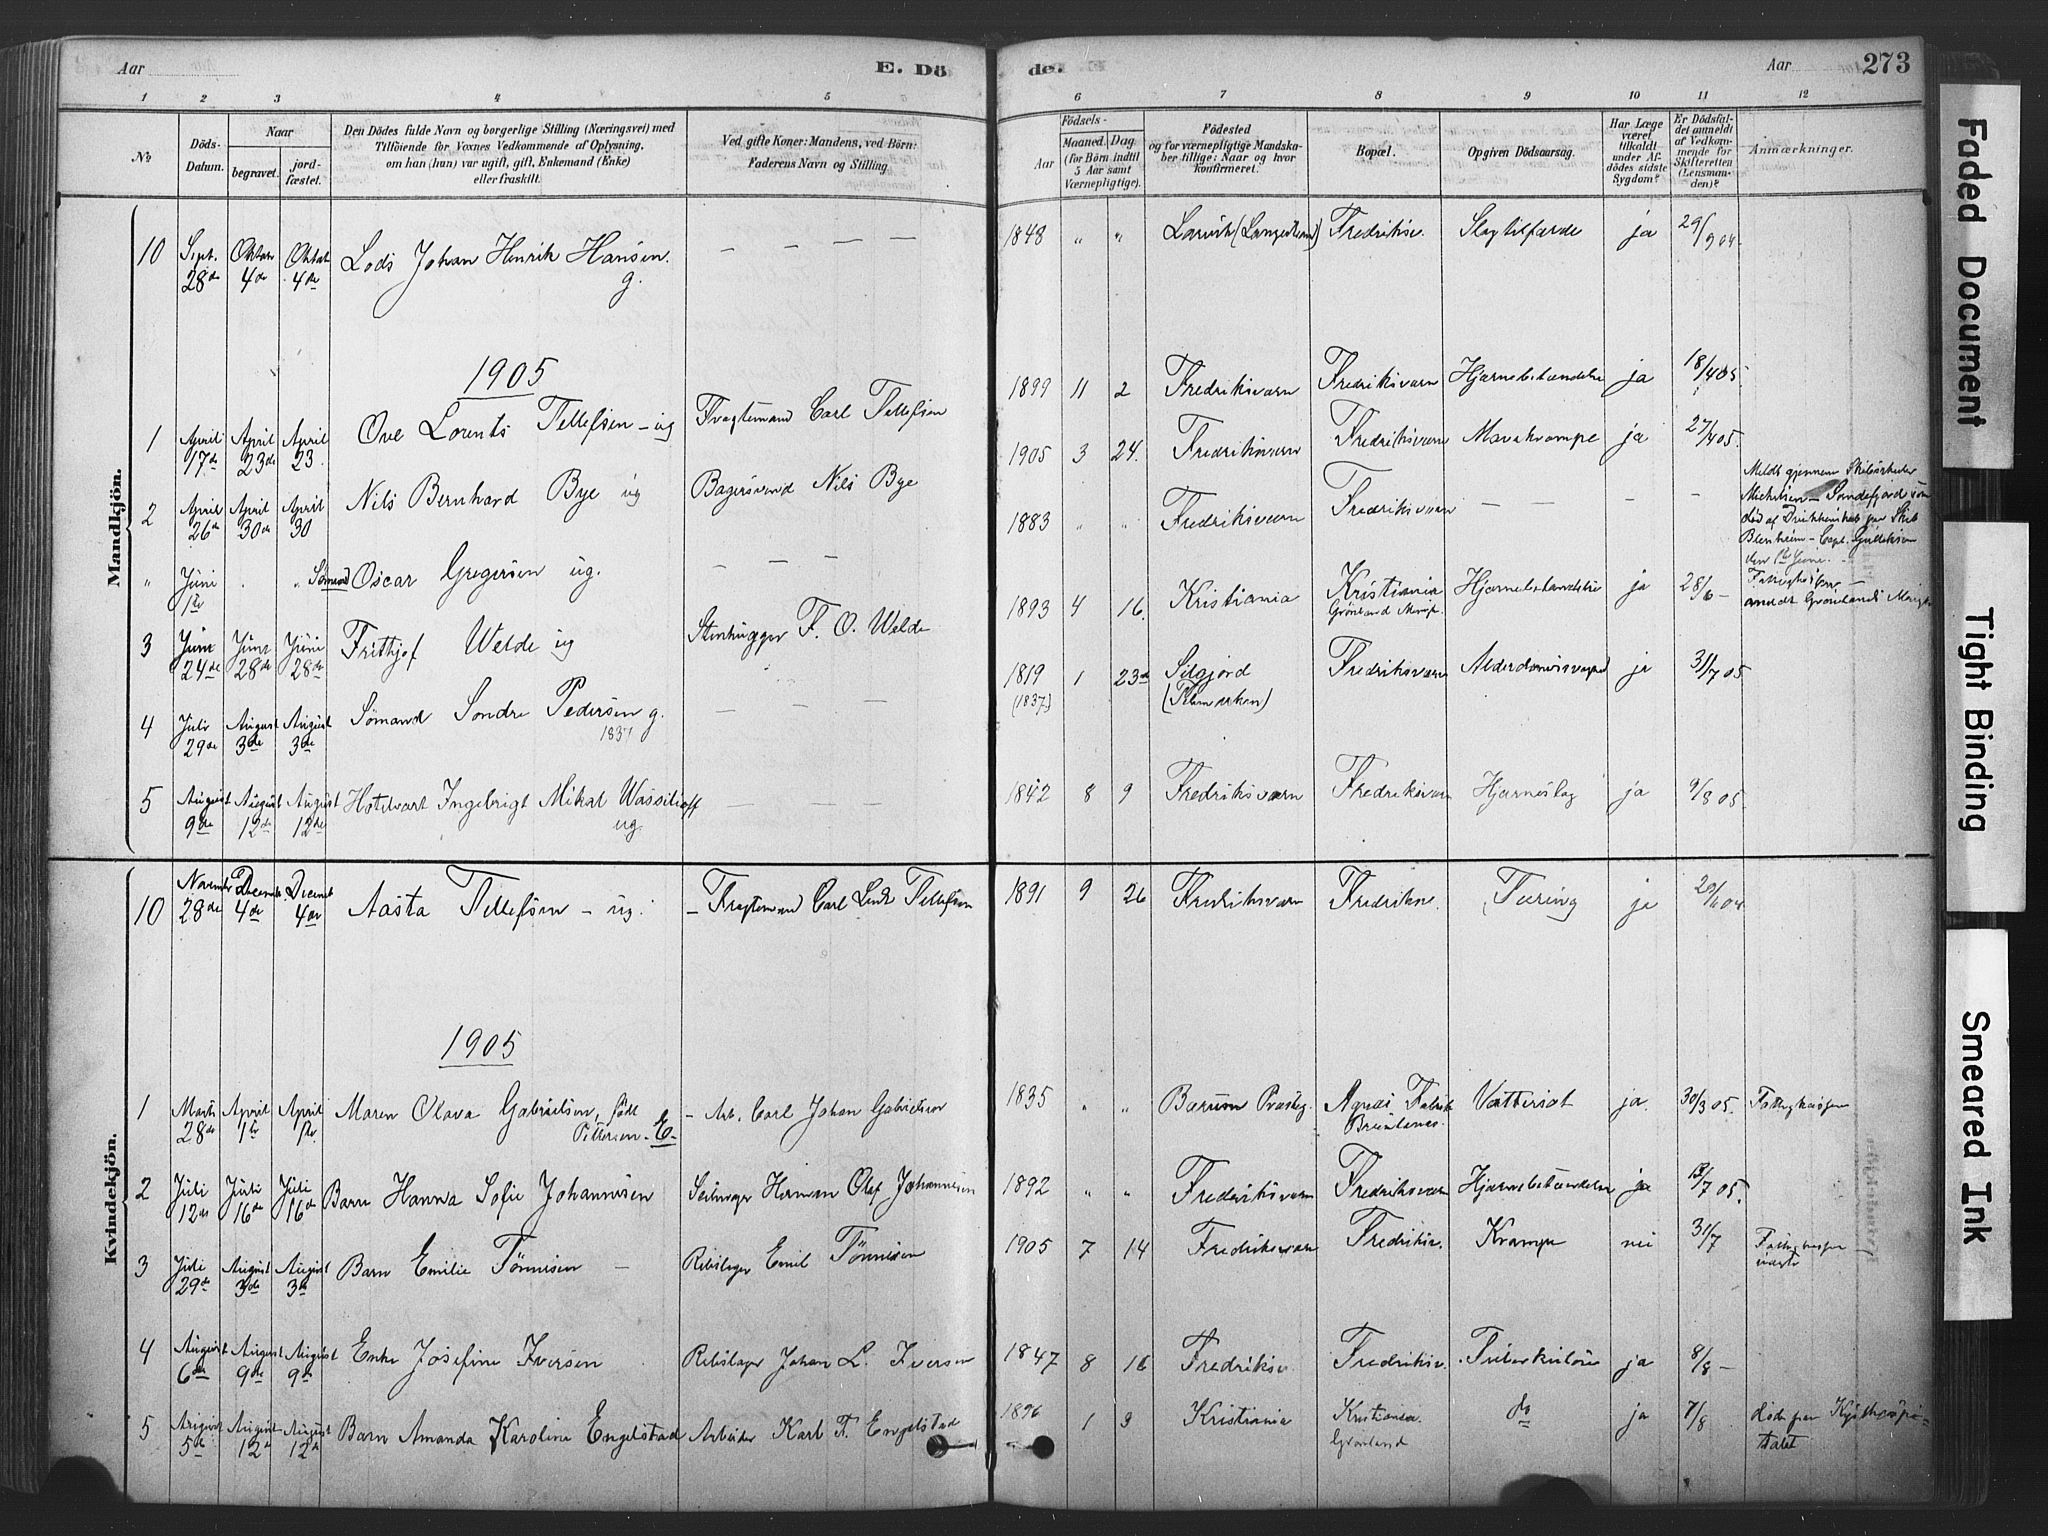 Aar E. Dö de. Aar 273
1 2 3 4 5 6 7 8 9 10 11 12
No
Döds-Datum.
Naar
begravet.
jordfæstet.
Den Dödes fulde Navn og borgerlige Stilling (Næringsvei) med
Tilföiende for Voxnes Vedkommende af Oplysning,
om han (hun) var ugift, gift, Enkemand (Enke)
eller fraskilt.
Ved gifte Koner: Mandens, ved Börn:
Faderens Navn og Stilling.
Födsels-
Aar
Maaned. Dag.
(for Börn indtil
5 Aar samt
Værnepligtige).
Födested
og for værnepligtige Mandska-
ber tillige: Naar og hvor
konfirmeret.
Bopæl.
Opgiven Dödsaarsag.
Har Læge
været
tilkaldt
under Af-
dödes sidste
Sygdom?
Er Dödsfal-
det anmeldt
af Vedkom-
mende for
Skifteretten
(Lensman-
den)?
Anmærkninger.
Mandkjön.
10 Sept. 28de Oktbr 4de Oktbr 4de Lods Johan Henrik Hansen g. — — — — 1848 " " Larvik (Langestrand) Fredriksv. Slagtilfælde ja 29/9 04
1905
1 April 17de April 23de April 23 Ove Lorents Tellefsen – ug Fragtemand Carl Tellefsen 1899 11 2 Fredriksværn Fredriksværn Hjernebetændelse ja 18/4 05
2 April 26de April 30de April 30 Nils Bernhard Bye ug Bagersvend Nils Bye 1905 3 24. Fredriksværn Fredriksværn Mavekrampe ja 27/4 05.
" Juni 1ste " " Sömand Oscar Gregersen ug. — — — 1883 " " Fredriksværn Fredriksværn — — — —
Meldt gjennem Skibsrheder
Michelsen – Sandefjord som
död af Drikkenskab paa Skib
Blenheim – Capt. Gulliksen
den 1ste Juni.
3 Juni 24de Juni 28de Juni 28de Frithjof Welde ug Stenhugger F. O. Welde 1893 4 16 Kristiania Kristiania Grönland Menigh. Hjernebetændelse ja 28/6 –
anmeldt Grönlands Menigh.
4 Juli 29de August 3de August 3de Sömand Söndre Pedersen g. 1837 — — — 1819 (1837) 1 23de Silgjord (Telemarken) Fredriksværn Alderdomssvaghed ja 31/7 05
5 August 9de August 12de August 12de Hotvart Ingebrigt Mikal Wassilioff ug — — 1842 8 9 Fredriksværn Fredriksværn Hjerneslag ja 9/8 05
Kvindekjön.
10 November 28de December 4de December 4de Aasta Tellefsen – ug. – Fragtemand Carl Tellefsen 1891 9 26 Fredriksværn Fredriksv. Tæring ja
1905
1 Marts 28de April 1ste April 1ste Maren Olava Gabrielsen, född Pettersen – E. – Arb. Carl Johan Gabrielsen 1835 " " Bærum Præsteg. Agnes Fabrik Brunlanes Vattersot ja. 30/3 05. Fattighuspen
2 Juli 12te Juli 16de Juli 16de Barn Hanna Sofie Johannesen Seilmager Herman Olaf Johannesen 1892 " " Fredriksværn Fredriksværn Hjernebetændelse ja 13/7 05.
3 Juli 29de August 3de August 3de Barn Emilie Tönnesen – Rebslager Emil Tönnesen 1905 7 14 Fredriksværn Fredriksv. Krampe nei 31/7
4 August 6te August 9de August 9de Enke Josefine Iversen Rebslager Johan L. Iversen 1847 8 16 Fredriksv. Fredriksv. Tuberkulose ja 8/8 –
5 August 5te August 12te August 12te Barn Amanda Karoline Engelstad Arbeider Karl F. Engelstad 1896 1 3 Kristiania Kristiania Grönland do ja 7/8 död paa Kysthospi-
talet
Faded Document
Tight Binding
Smeared Ink